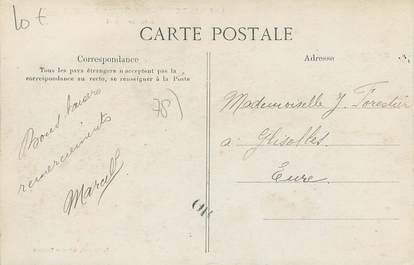 Lot
CARTE POSTALE
Correspondance
Tous les pays étrangers n'acceptent pas la
correspondance au recto, se renseigner à la Poste
78)
Bons baisers
remerciements
Marcel
Adresse
Mademoiselle J. Forestier
à Glisolles
Eure.